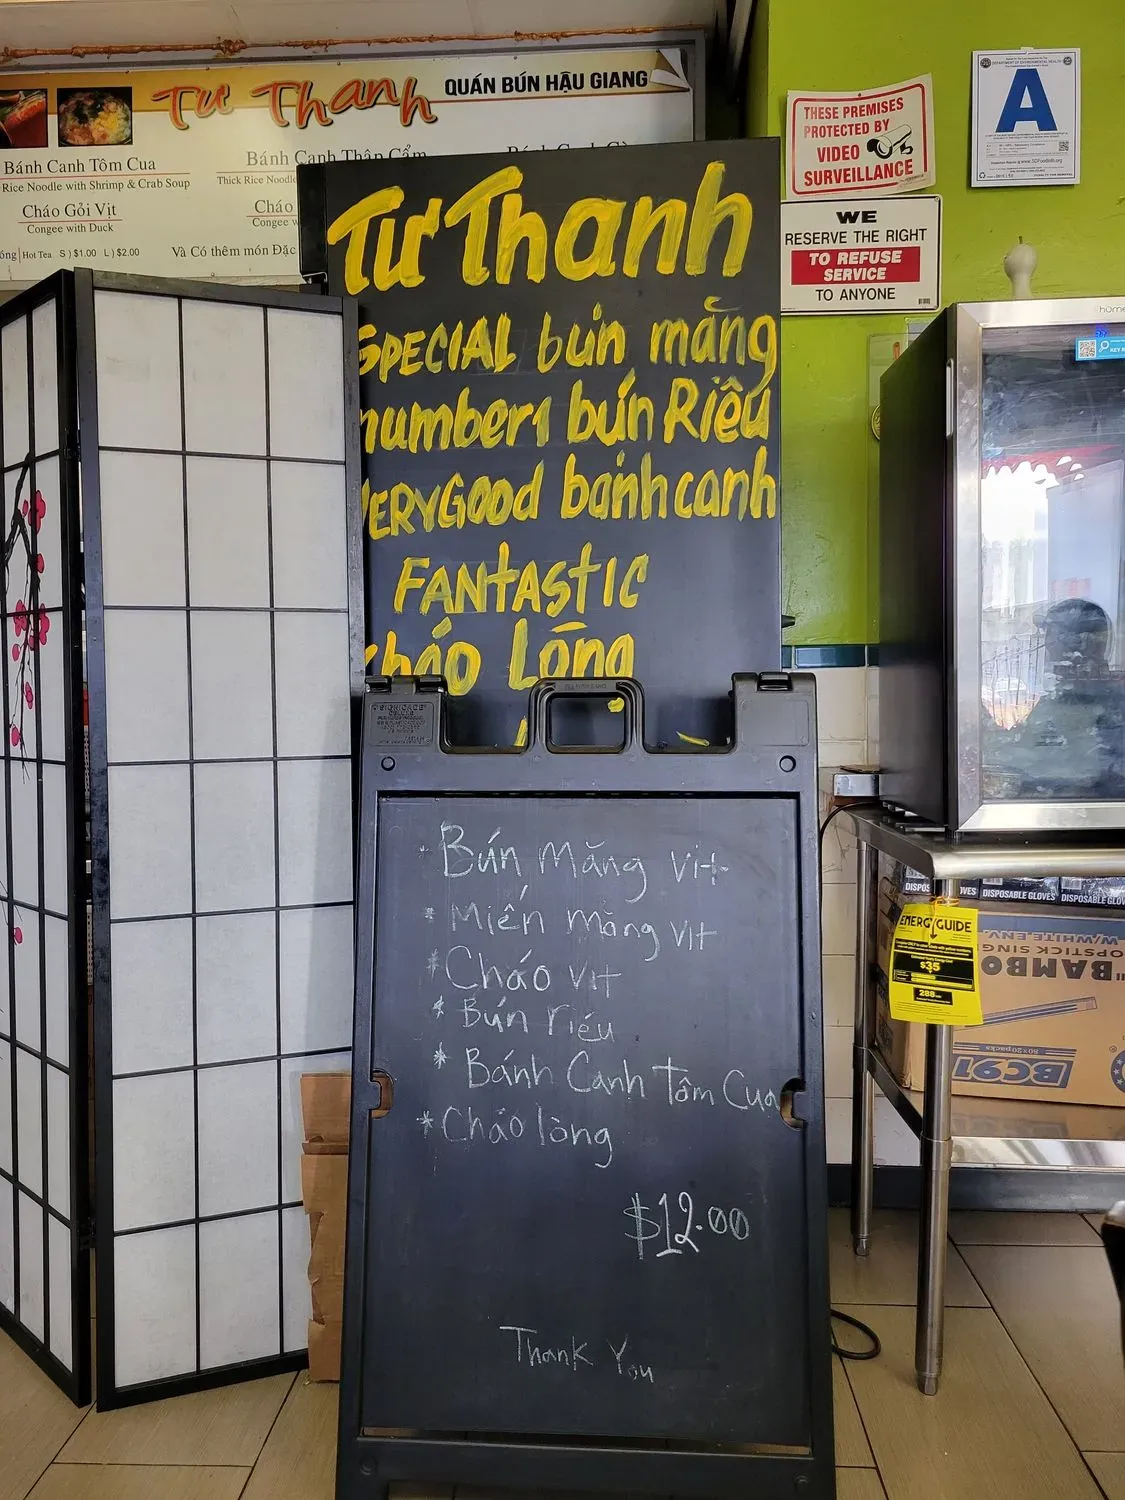 Tư Thanh
QUÁN BÚN HẬU GIANG
Bánh Canh Tôm Cua
Rice Noodle with Shrimp & Crab Soup
Cháo Gỏi Vịt
Congee with Duck
Hot Tea S) $1.00 L) $2.00
Bánh Canh Thập Cẩm
Thick Rice Noodle
Cháo
Congee
Và Có thêm món Đặc
Tư Thanh
SPECIAL bún măng
number1 bún Riêu
VERYGOOD bánh canh
FANTASTIC
cháo Lòng
* Bún Măng Vit
* Miến măng vit
* Cháo vit
* Bún riêu
* Bánh Canh Tôm Cua
* Cháo lòng
$12.00
Thank You
THESE PREMISES
PROTECTED BY
VIDEO
SURVEILLANCE
A
WE
RESERVE THE RIGHT
TO REFUSE
SERVICE
TO ANYONE
DISPOSABLE GLOVES
ENERGYGUIDE
$35
288
W/WHITE ENV.
BAMBO
80×20packs
BC91